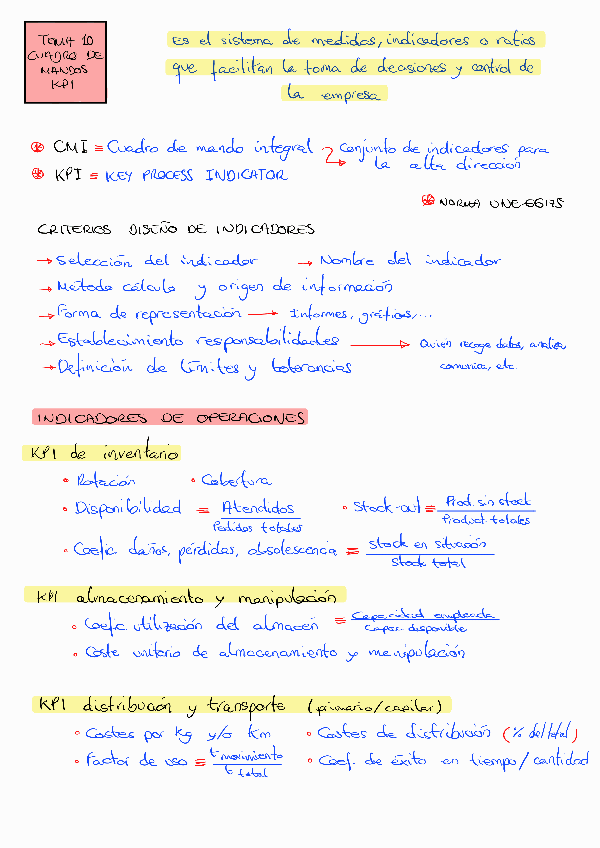 TEMA 10
CUADRO DE
MANDOS
KPI
Es el sistema de medidas, indicadores o ratios
que facilitan la toma de decisiones y control de
la empresa
CMI ≡ Cuadro de mando integral → Conjunto de indicadores para
la alta dirección
KPI ≡ KEY PROCESS INDICATOR
NORMA UNE 66175
CRITERIOS DISEÑO DE INDICADORES
→ Selección del indicador → Nombre del indicador
→ Método cálculo y origen de información
→ Forma de representación → Informes, gráficos,...
→ Establecimiento responsabilidades → Quien recoge datos, analiza,
comunica, etc.
→ Definición de límites y tolerancias
INDICADORES DE OPERACIONES
KPI de inventario
• Rotación • Cobertura
• Disponibilidad = Atendidos / Pedidos totales • Stock-out = Prod. sin stock / Product. totales
• Coefic daños, pérdidas, obsolescencia = Stock en situación / Stock total
KPI almacenamiento y manipulación
• Coefic. utilización del almacén = Capacidad empleada / Capac. disponible
• Coste unitario de almacenamiento y manipulación
KPI distribución y transporte (primario/capilar)
• Costes por kg y/o km • Costes de distribución (% del total)
• Factor de uso = t movimiento / t total • Coef. de éxito en tiempo/cantidad